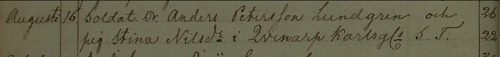 Augusti 16 Soldat. Dr. Anders Petersson Lundgren och 26
pig. Stina Nilsdr i Qvinarp Karlsgfs S. T. 22